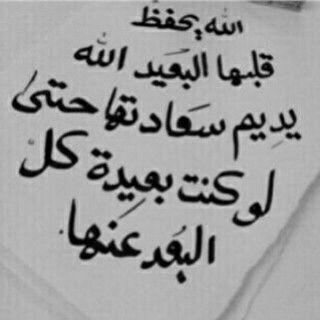 الله يحفظ
قلبها البَعيد الله
يديم سعَادتها حتىٰ
لو كنت بعيدة كلّ
البُعد عَنها.